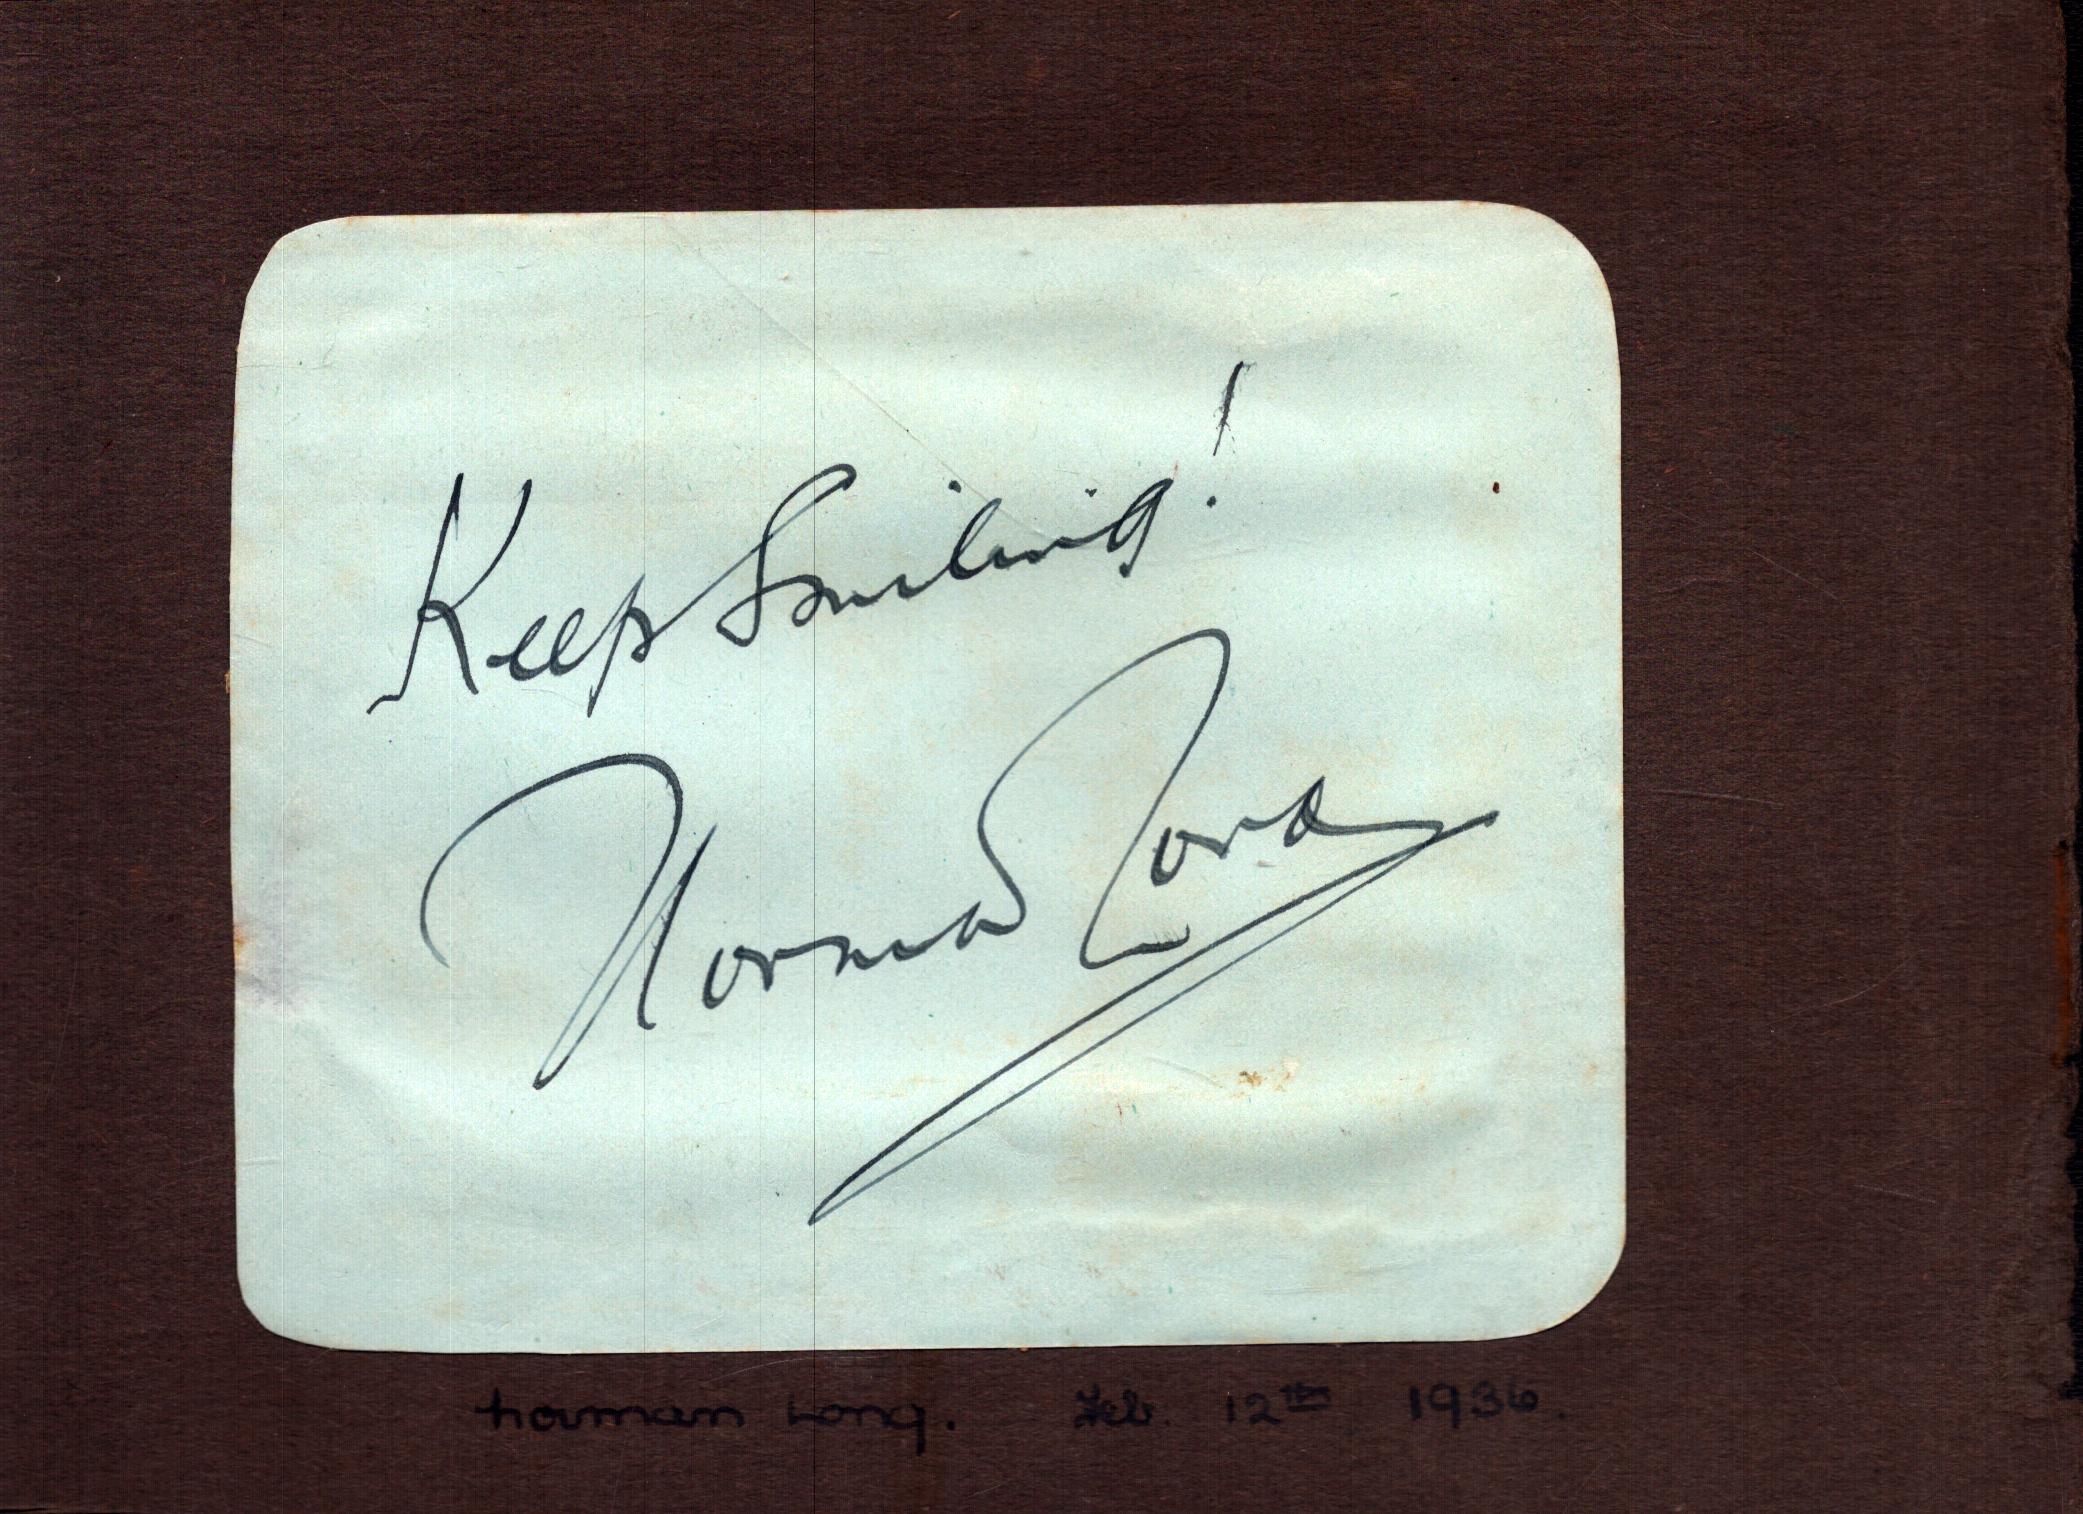 Keep Smiling!
Norman Long
Norman Long. Feb. 12th 1936.